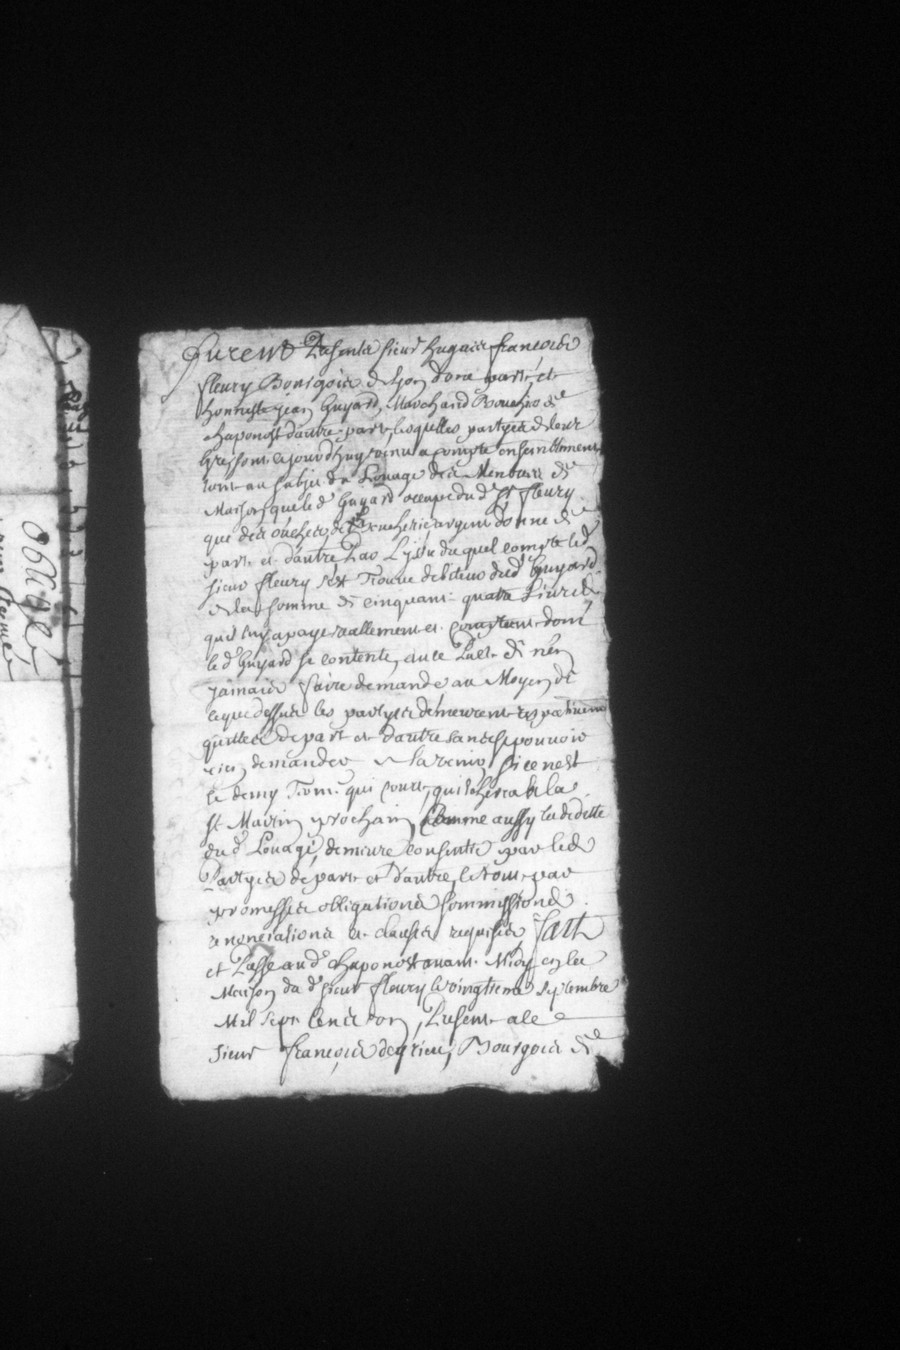 Furent Presents sieur hugues francois
fleury Bourgois de Lyon dune part, et
honneste jean Guyard, Marchand Boucher de
chaponost dautre part, lesquelles partyes de leur
gre sont cejourdhuy venu a compte ensemblement
tant au subjet du Louage des Membres de
Maison que led Guyard occupe dud sr fleury
que des de Boucherie argent donne de
part et dautre Par Lyssu duquel compte led
sieur fleury sest Trouve debiteur dud Guyard
de la somme de cinquante quatre Livres
quil luy a paye reallement et comptant dont
le d Guyard se contente, avec Pacte de nen
jamais faire demande au Moyen de
ce que dessus les partyes demeurent respectivement
quittes de part et dautre sans se pouvoir
rien demander a Ladvenir, si ce nest
le demy Trom. qui court, qui echerra a la
St Martin prochain, Comme aussy la
du d Louage, demeure consentie par led
Partyes de part et dautre, le tout par
promesses obligations soumissions
renonciations et clauses requises fait
et Passe aud chaponost avant Midy en la
Maison du d sieur fleury le vingtieme septembre
Mil sept cent , Present a le
sieur francois Bourgois de